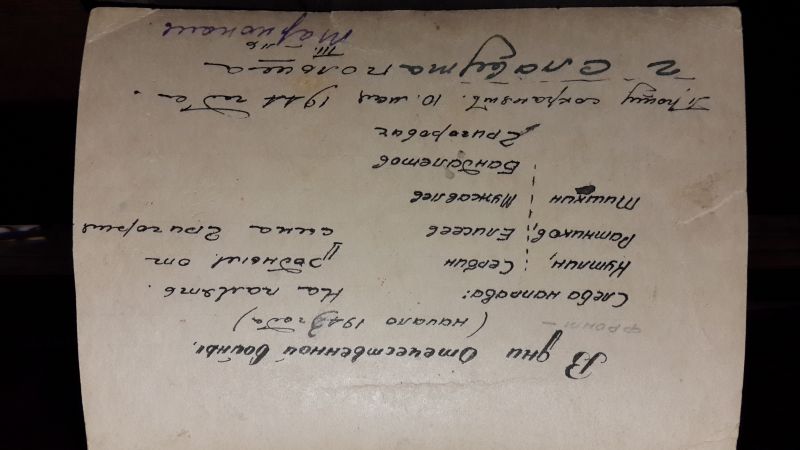 В дни Отечественной войны.
фронт – (начало 1943 года)
Слева направо: На память.
Кутлин, Сербин родным от
Ратников, Елисеев сына Григория
Тишкин Мужавлев
Бандалетов
Григорович
Прошу сохранить. 10. мая 1944 года.
г. Славута польша